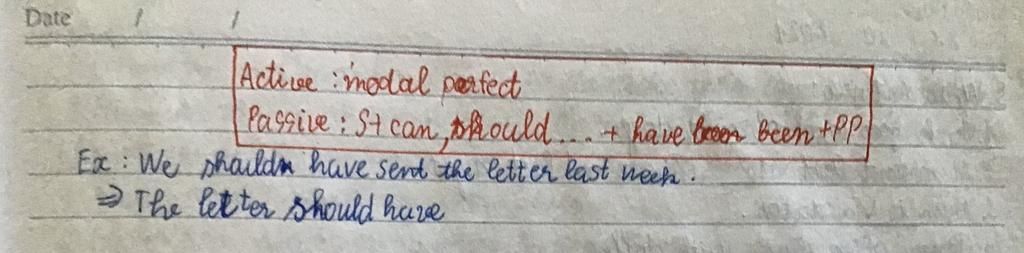 Date / /
Active : modal perfect
Passive : S+ can, should.... + have been been +PP
Ex : We should have sent the letter last week.
⇒ The letter should have